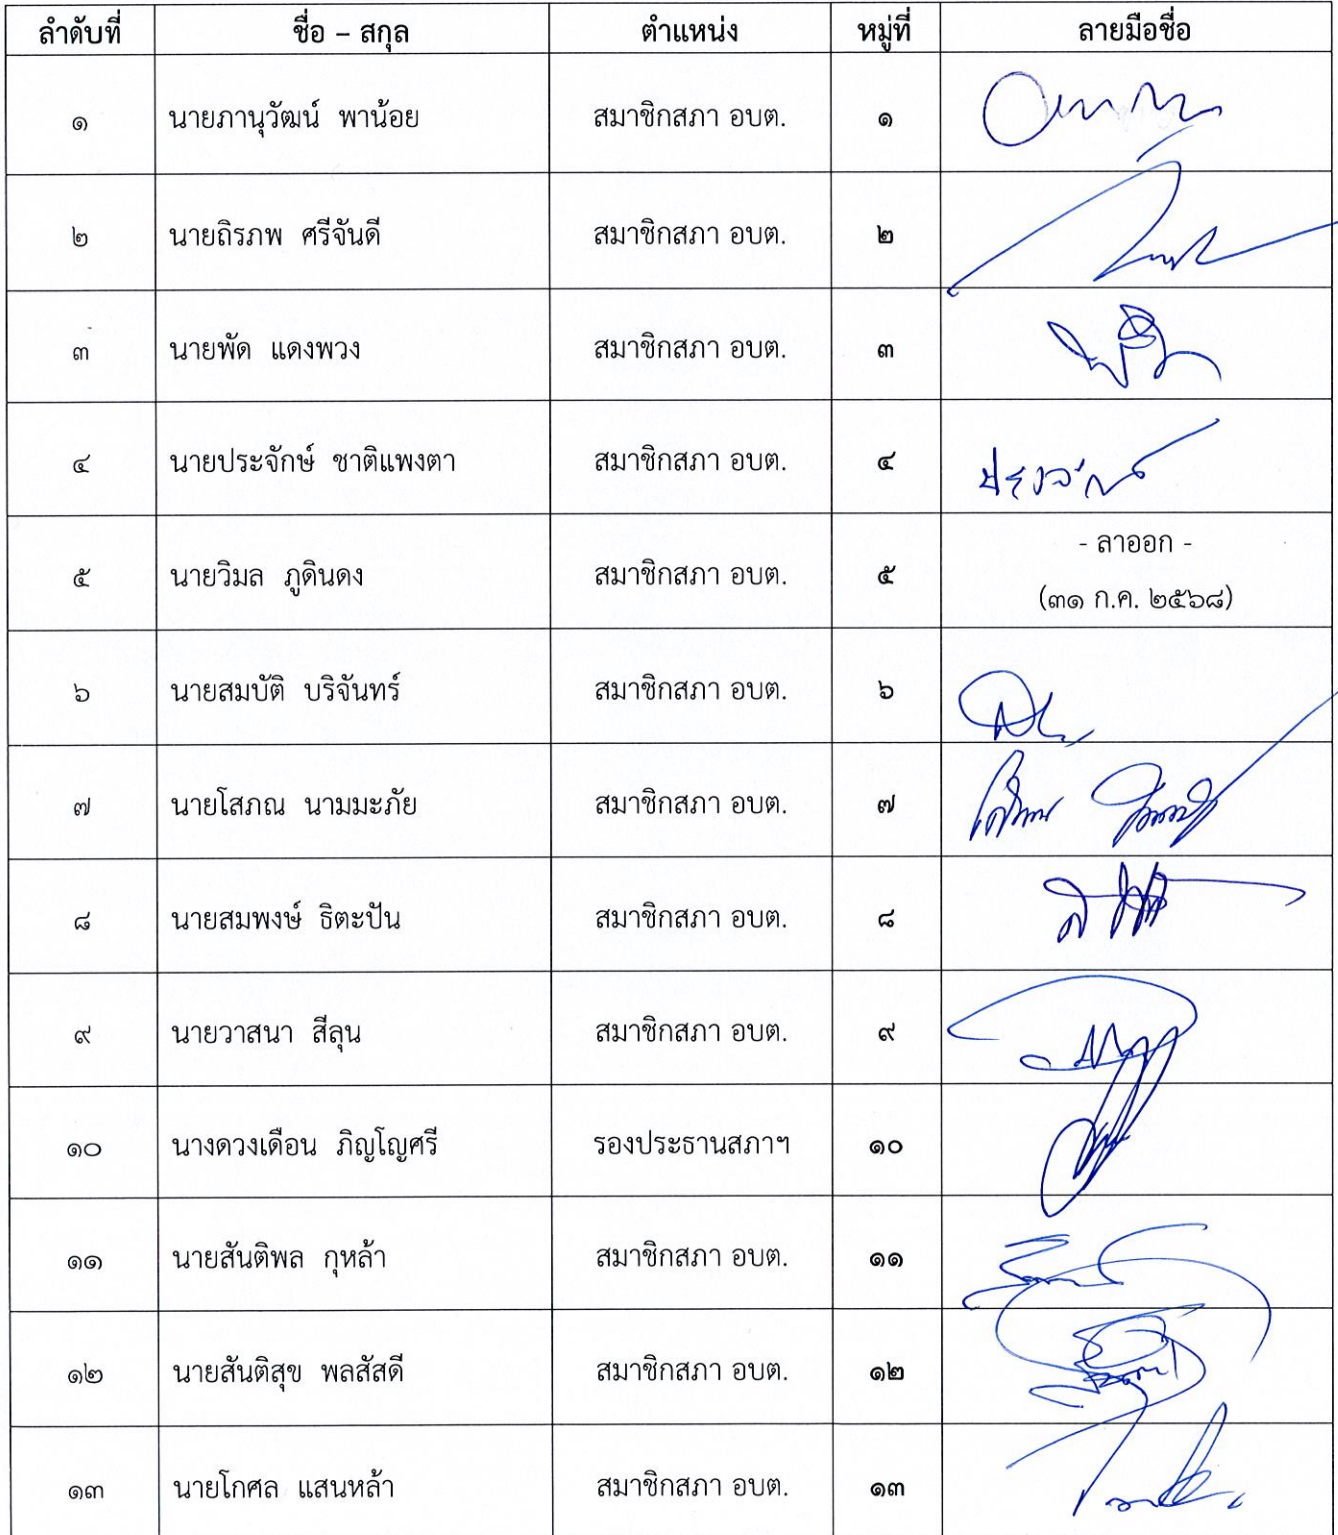 ลำดับที่ ชื่อ – สกุล ตำแหน่ง หมู่ที่ ลายมือชื่อ
๑ นายภานุวัฒน์ พาน้อย สมาชิกสภา อบต. ๑
๒ นายถิรภพ ศรีจันดี สมาชิกสภา อบต. ๒
๓ นายพัด แดงพวง สมาชิกสภา อบต. ๓
๔ นายประจักษ์ ชาติแพงตา สมาชิกสภา อบต. ๔ ประจักษ์
- ลาออก -
๕ นายวิมล ภูดินดง สมาชิกสภา อบต. ๕
(๓๑ ก.ค. ๒๕๖๘)
๖ นายสมบัติ บริจันทร์ สมาชิกสภา อบต. ๖
๗ นายโสภณ นามมะภัย สมาชิกสภา อบต. ๗
๘ นายสมพงษ์ ธิตะปัน สมาชิกสภา อบต. ๘
๙ นายวาสนา สีลุน สมาชิกสภา อบต. ๙
๑๐ นางดวงเดือน ภิญโญศรี รองประธานสภาฯ ๑๐
๑๑ นายสันติพล กุหล้า สมาชิกสภา อบต. ๑๑
๑๒ นายสันติสุข พลสัสดี สมาชิกสภา อบต. ๑๒
๑๓ นายโกศล แสนหล้า สมาชิกสภา อบต. ๑๓